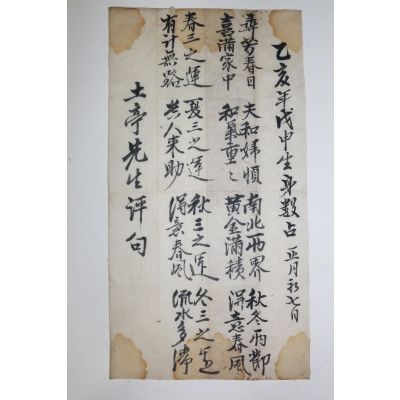 乙亥年戊申生身数占 正月初七日
尋芳春日 夫和婦順 南北兩界 秋冬兩節
喜滿家中 和氣重〻 黃金滿積 得意春風
春三之運 夏三之運 秋三之運 冬三之運
有計無路 貴人來助 得意春風 流水多滯
土亭先生評句